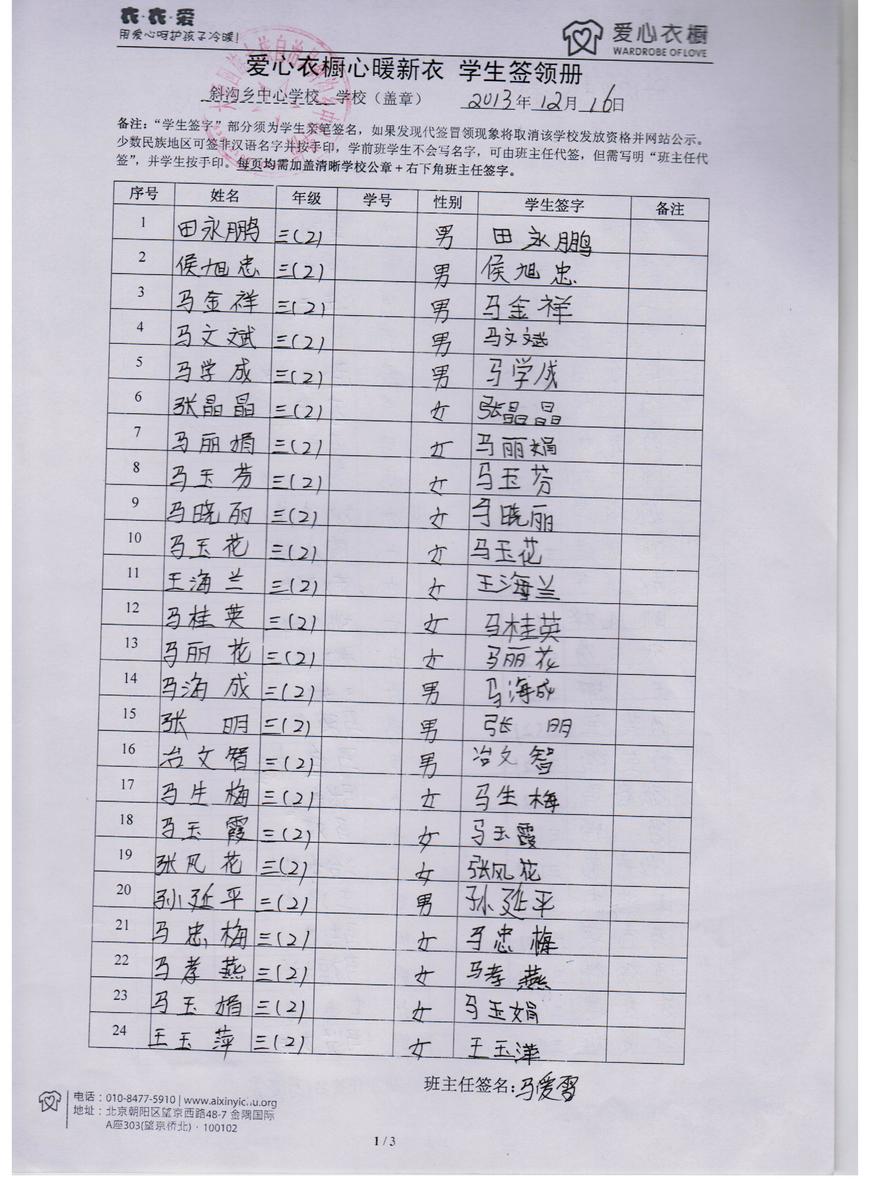 衣·衣·爱
用爱心呵护孩子冷暖!
爱心衣橱
WARDROBE OF LOVE
爱心衣橱心暖新衣 学生签领册
斜沟乡中心学校 学校（盖章） 2013年12月16日
备注：“学生签字”部分须为学生亲笔签名，如果发现代签冒领现象将取消该学校发放资格并网站公示。
少数民族地区可签非汉语名字并按手印，学前班学生不会写名字，可由班主任代签，但需写明“班主任代
签”，并学生按手印。每页均需加盖清晰学校公章+右下角班主任签字。
序号 姓名 年级 学号 性别 学生签字 备注
1 田永鹏 三(2) 男 田永鹏
2 侯旭忠 三(2) 男 侯旭忠
3 马金祥 三(2) 男 马金祥
4 马文斌 三(2) 男 马文斌
5 马学成 三(2) 男 马学成
6 张晶晶 三(2) 女 张晶晶
7 马丽娟 三(2) 女 马丽娟
8 马玉芬 三(2) 女 马玉芬
9 马晓丽 三(2) 女 马晓丽
10 马玉花 三(2) 女 马玉花
11 王海兰 三(2) 女 王海兰
12 马桂英 三(2) 女 马桂英
13 马丽花 三(2) 女 马丽花
14 马海成 三(2) 男 马海成
15 张明 三(2) 男 张明
16 冶文智 三(2) 男 冶文智
17 马生梅 三(2) 女 马生梅
18 马玉霞 三(2) 女 马玉霞
19 张风花 三(2) 女 张风花
20 孙延平 三(2) 男 孙延平
21 马忠梅 三(2) 女 马忠梅
22 马孝燕 三(2) 女 马孝燕
23 马玉娟 三(2) 女 马玉娟
24 王玉萍 三(2) 女 王玉萍
班主任签名:马爱
电话：010-8477-5910 | www.aixinyic..u.org
地址：北京朝阳区望京西路48-7 金隅国际
A座303(望京侨北)·100102
1 / 3